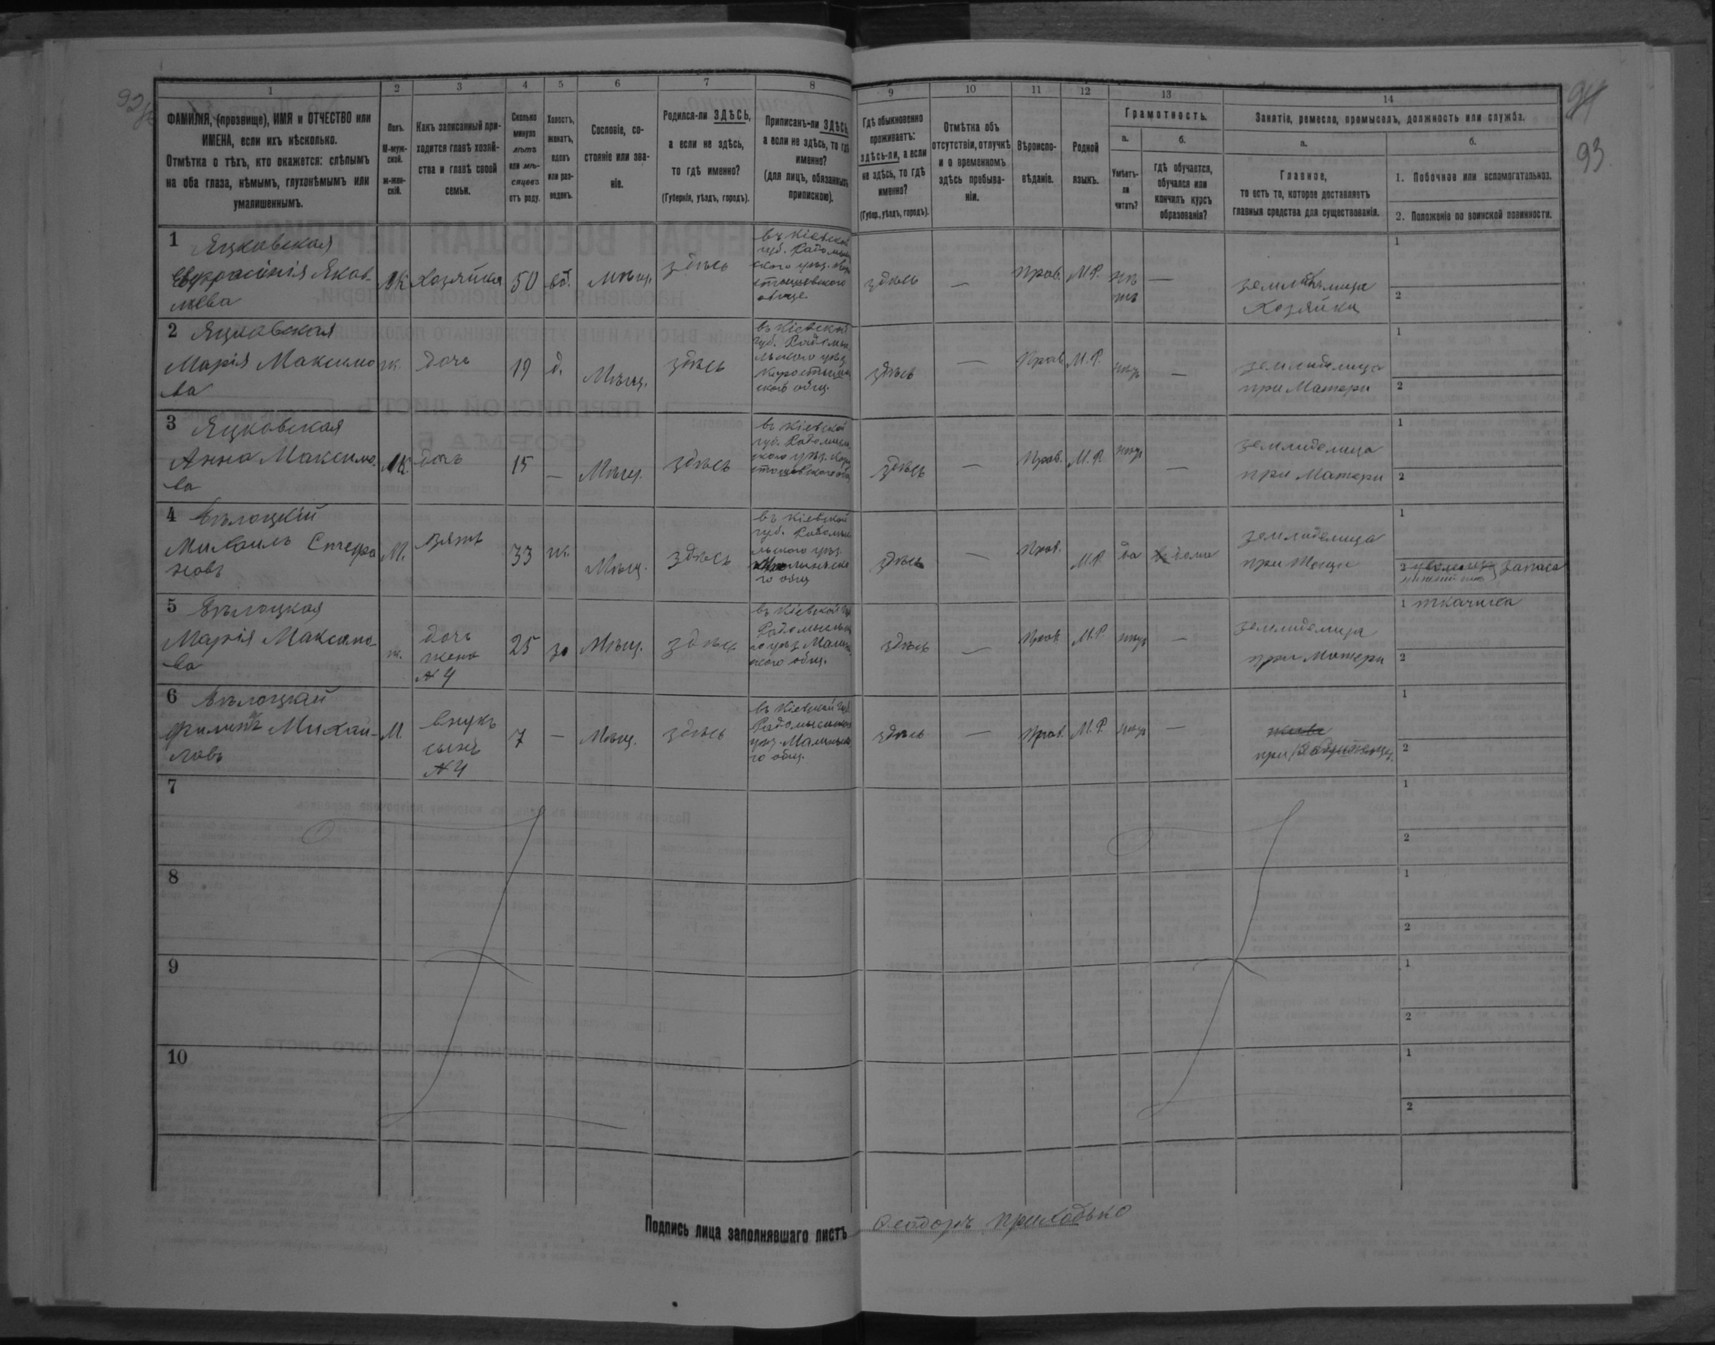 1
2
3
4
5
6
7
8
ФАМИЛІЯ, (прозвище), ИМЯ и ОТЧЕСТВО или
ИМЕНА, если ихъ нѣсколько.
Отмѣтка о тѣхъ, кто окажется: слѣпымъ
на оба глаза, нѣмымъ, глухонѣмымъ или
умалишеннымъ.
Полъ.
М-муж-
ской.
ж-жен-
скій.
Какъ записанный при-
ходится главѣ хозяй-
ства и главѣ своей
семьи.
Сколько
минуло
лѣтъ
или мѣ-
сяцевъ
отъ роду.
Холостъ,
женатъ,
вдовъ
или раз-
веденъ.
Сословіе, со-
стояніе или зва-
ніе.
Родился-ли ЗДѢСЬ,
а если не здѣсь,
то гдѣ именно?
(Губернія, уѣздъ, городъ).
Приписанъ-ли ЗДѢСЬ,
а если не здѣсь, то гдѣ
именно?
(для лицъ, обязанныхъ
припискою).
9
10
11
12
13
14
Гдѣ обыкновенно
проживаетъ:
здѣсь-ли, а если
не здѣсь, то гдѣ
именно?
(Губер., уѣздъ, городъ).
Отмѣтка объ
отсутствіи, отлучкѣ
и о временномъ
здѣсь пребыва-
ніи.
Вѣроиспо-
вѣданіе.
Родной
языкъ.
Грамотность.
а.
Умѣетъ-
ли
читать?
б.
гдѣ обучается,
обучался или
кончилъ курсъ
образованія?
Занятіе, ремесло, промыселъ, должность или служба.
а.
Главное,
то есть то, которое доставляетъ
главныя средства для существованія.
б.
1. Побочное или вспомогательное.
2. Положеніе по воинской повинности.
94
93.
1 Яцковская
Евфросинія Яков
лева
ж. Хозяйка 50 вд. Мѣщ. здѣсь
въ Кіевской
губ. Радомы
здѣсь — Прав. М.Р. нѣ
тъ —
Хозяйка
1
2
2 Яцковская
Марія Максимо
ва
ж. дочь 19 д. Мѣщ. здѣсь
въ Кіевской
губ. Радомы
льского уѣз.
здѣсь — Прав. М.Р. —
при Матери
1
2
3 Яцковская
Анна Максимо
ва
ж. дочь 15 — Мѣщ. здѣсь
въ Кіевской
здѣсь — Прав. М.Р. —
при Матери
1
2
4 Бѣлоцкій
Михаилъ Стефа
новъ
М. зять 33 ж. Мѣщ. здѣсь
въ Кіевской
губ. Радомы
льского уѣз.
го общ.
здѣсь — Прав. М.Р. да дома
при Тещи
1
2 запаса
5 Бѣлоцкая
Марія Максимо
ва
ж. дочь
жена
№ 4
25 за Мѣщ. здѣсь
въ Кіевской губ.
здѣсь — Прав. М.Р. —
при Матери
1 ткачиха
2
6 Бѣлоцкій
Филиппъ Михаи-
ловъ
М. внукъ
сынъ
№ 4
7 — Мѣщ. здѣсь
въ Кіевской губ.
го общ.
здѣсь — Прав. М.Р. —
при
1
2
7
1
2
8
1
2
9
1
2
10
1
2
Подпись лица заполнявшаго листъ Ѳеодоръ Приходько